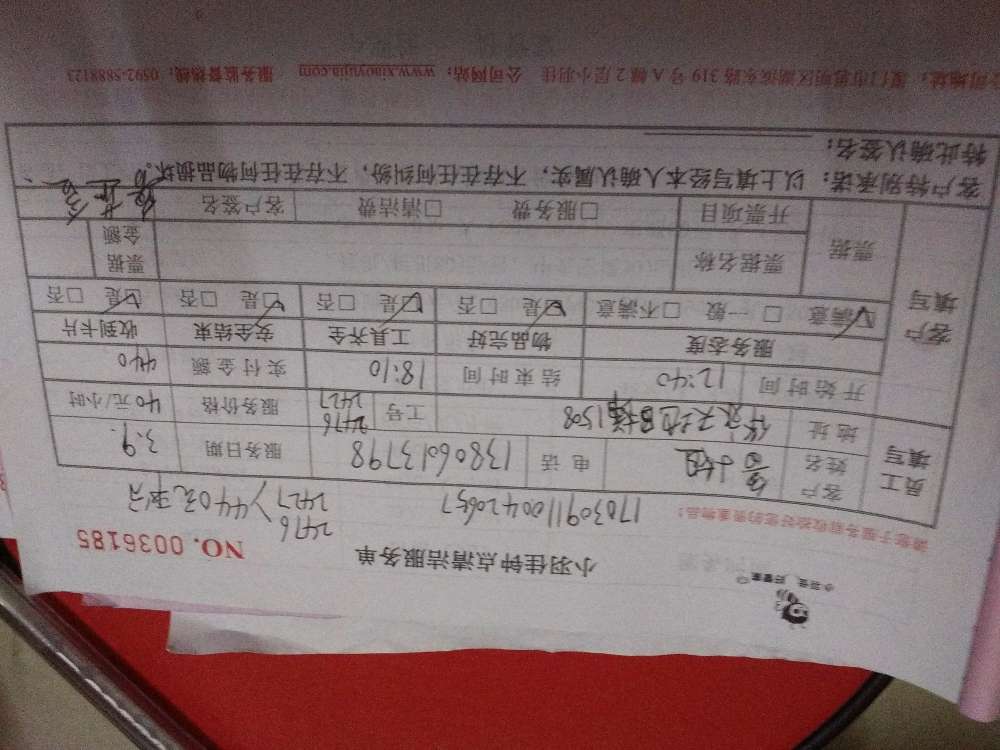 小羽佳 好管家
小羽佳钟点清洁服务单
NO. 0036185
请您于服务前收检好您的贵重物品!
170309110042065
2476
2427 440元 平分
员工填写
客户姓名 小姐 电话 13806013798 服务日期 3.9.
地址 1508 工号 2476 2427 服务价格 40元/小时
开始时间 12:40 结束时间 18:10 实付金额 440
客户填写
服务态度 物品完好 工具齐全 安全结束 收到卡片
☑满意 □一般 □不满意 ☑是 □否 ☑是 □否 ☑是 □否 ☑是 □否
票据 票据名称 票据金额
开票项目 □服务费 □清洁费 客户签名
客户特别承诺:以上填写经本人确认属实,不存在任何纠纷,不存在任何物品损坏。
特此确认签名:
公司地址:厦门市思明区湖滨东路 319 号 A 幢 2 层小羽佳 公司网站:www.xiaoyujia.com 服务监督热线:0592-5888123